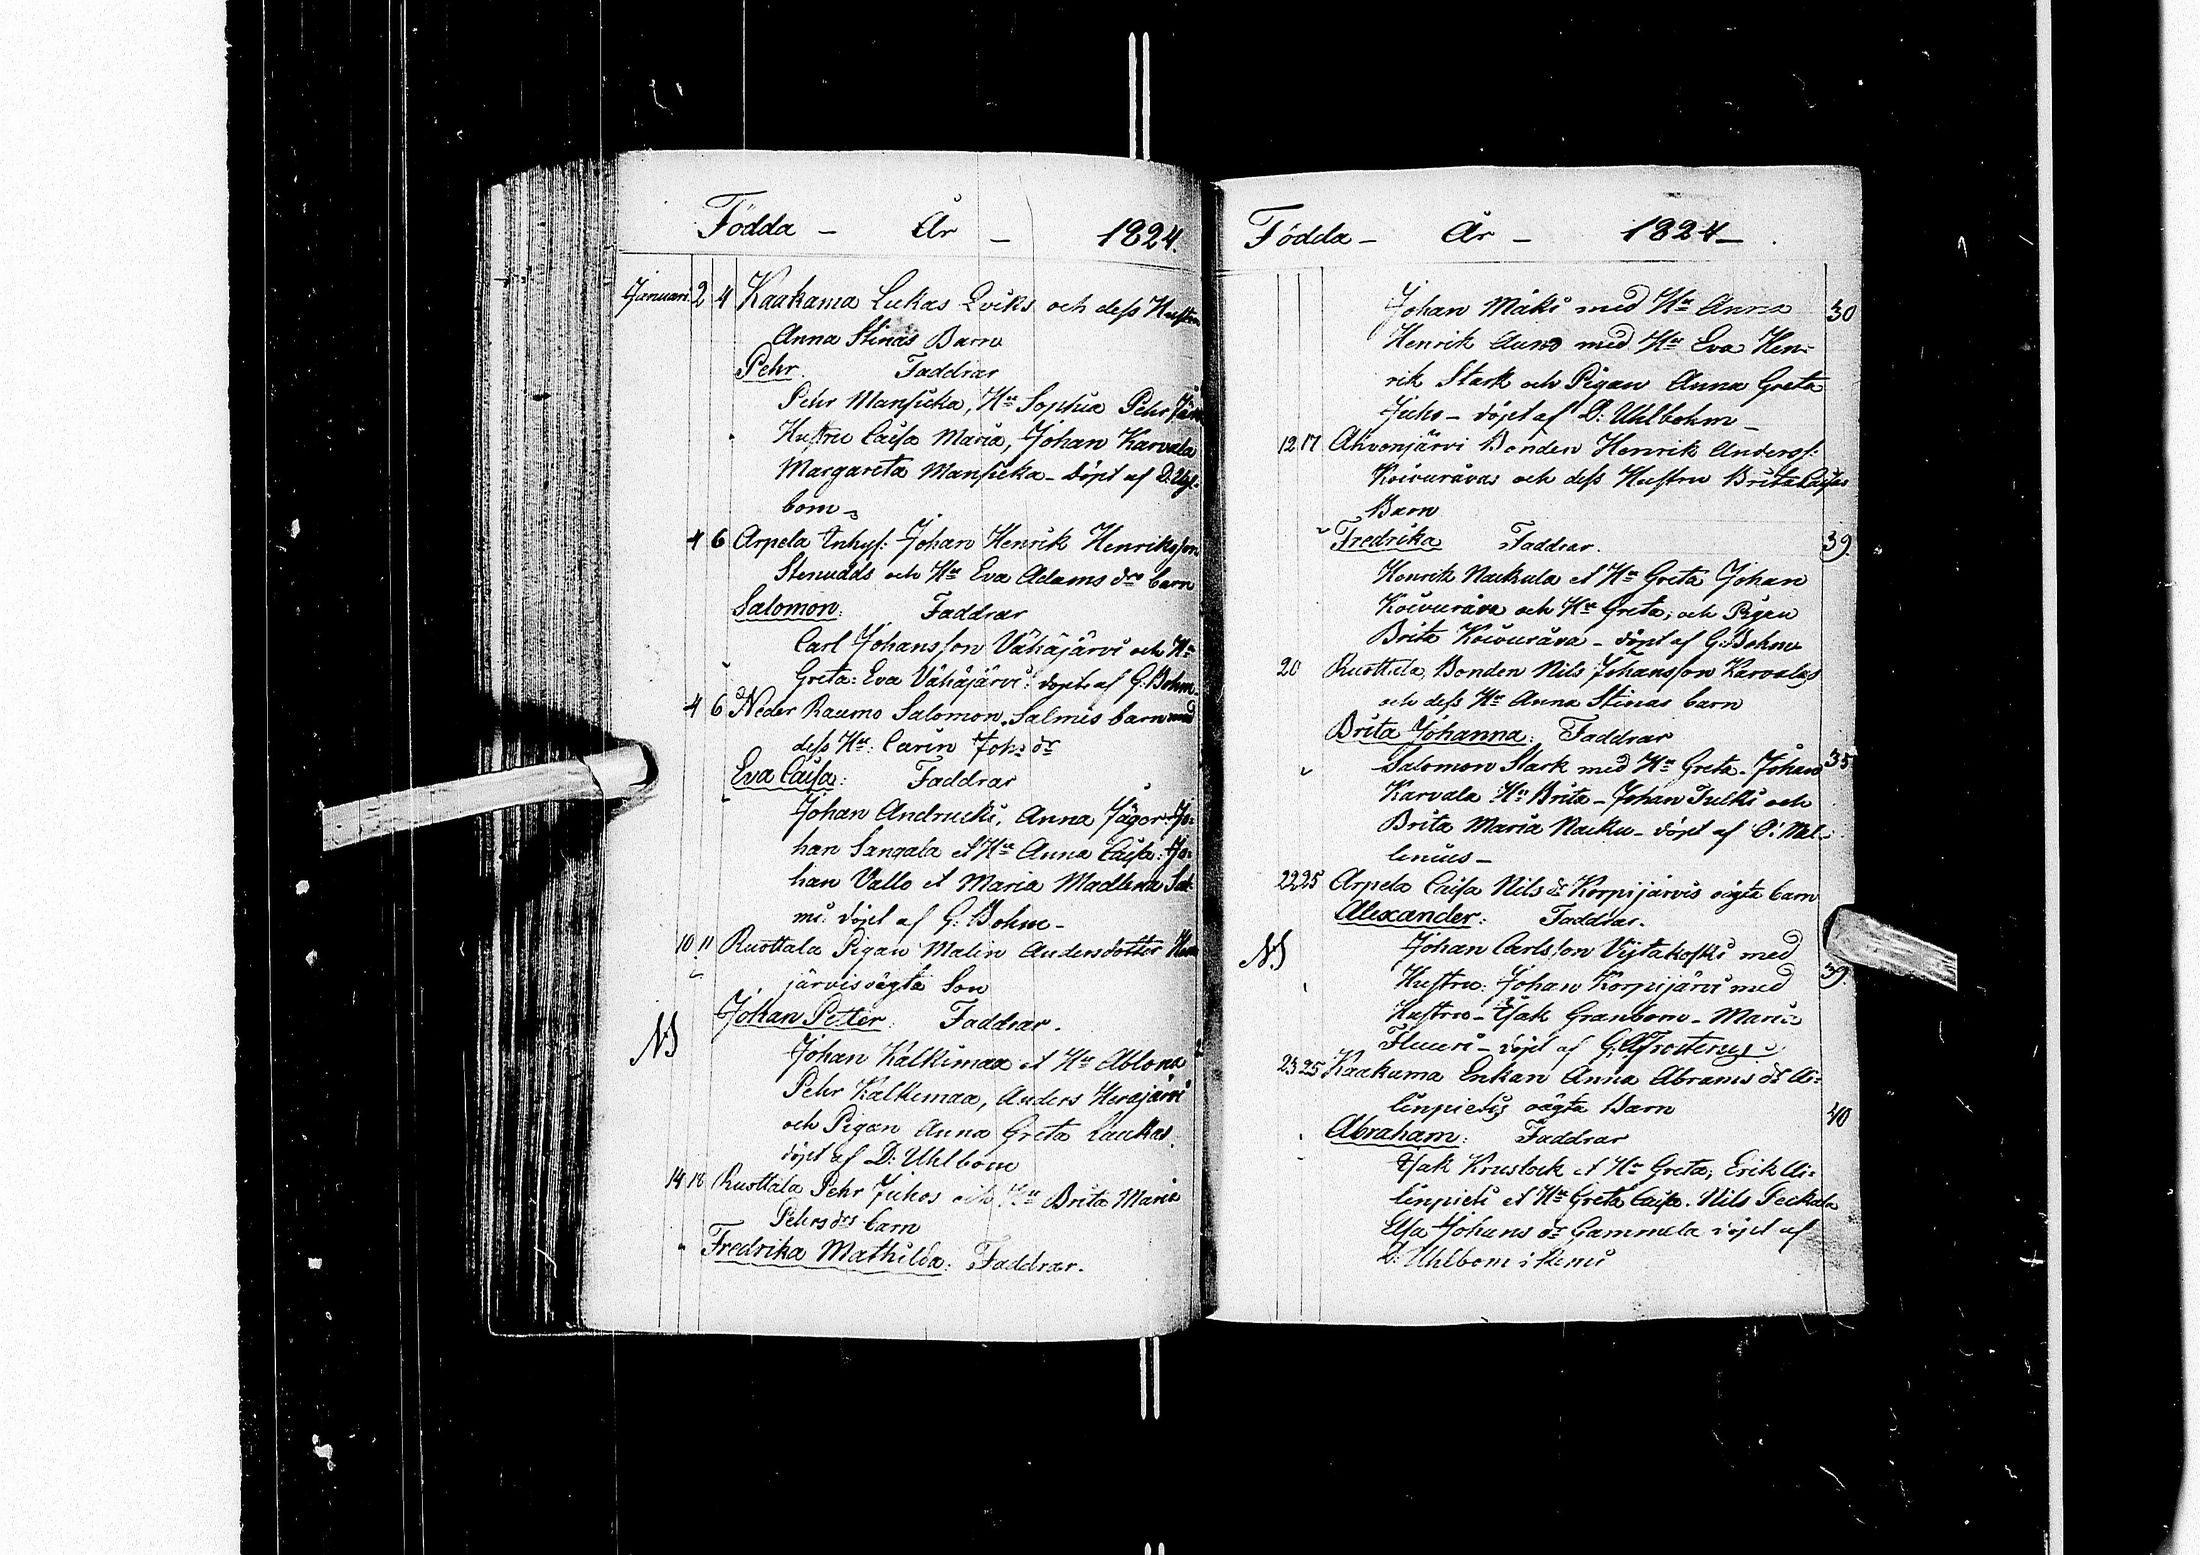 Födda - År - 1824.
Januari 2 4 Kaakama Lukas Lviks och dess Hustru
Anna Stinas Barn
Pehr. Faddrar
Pehr Mansicka, Hu Sophia Pehr
Hustru Caisa Maria, Johan Karvala
Margareta Mansicka - döpt af D: Uhl-
bom -
4 6 Arpela Inhys: Johan Henrik Henriksson
Stenudds och Hu Eva Adams drs barn
Salomon: Faddrar
Carl Johansson Vähäjärvi och Hu
Greta: Eva Vähäjärvi: döpt af G. Bohm
4 6 Neder Raumo Salomon Salmis barn med
dess Hu: Carin Johs dr
Eva Caisa: Faddrar
Johan Andrucki, Anna Jäger: Jo-
han Sangala et Hu Anna Caisa: Jo-
han Vallo et Maria Madlena Sal-
mi: döpt af G: Bohm -
10 11 Ruottala Pigan Malin Andersdotter
järvis oägta Son
Johan Peter: Faddrar.
NS
Johan Kalkimaa et Hu Ablona
Pehr Kalkimaa, Anders Herajärvi
och Pigan Anna Greta Laukas
döpt af D: Uhlbom
14 18 Ruottala Pehr Juhos och Hu Brita Maria
Pehrs drs barn
Fredrika Mathilda: Faddrar.
Födda - År - 1824 -
Johan Mäki med Hu Anna 30
Henrik Auno med Hu Eva Hen-
rik Stark och Pigan Anna Greta
Juho - döpt af D: Uhlbohm -
12 17 Ahvonjärvi Bonden Henrik Anderss:
Koivuråvas och dess Hustru Brita Caisas
Barn
Fredrika Faddrar. 39
Henrik Nackula et Hu Greta Johan
Koivuråva och Hu Greta, och Pigan
Brita Koivuråva - döpt af G: Bohm
20 Ruottala, Bonden Nils Johansson Karvalas
och dess Hu Anna Stinas barn
Brita Johanna: Faddrar
Salomon Stark med Hu Greta - Johan 35
Karvala Hu Brita - Johan Julki och
Brita Maria Nacku - döpt af O: Mel-
lenius -
22 25 Arpela Caisa Nils dr Korpijärvis oägta barn
Alexander: Faddrar.
NS
Johan Carlsson Vijtakoski med
Hustru: Johan Korpijärvi med 39
Hustru - Isak Granbom - Maria
- döpt af G. A. Frosterus
23 25 Kaakama Enkan Anna Abrams dr Ai-
linpietis oägta Barn
Abraham: Faddrar 40
Isak Krustock et Hu Greta, Erik Ai-
linpieti et Hu Greta Caisa. Nils Peckala
Elsa Johans dr Gammela döpt af
D: Uhlbom i Kemi